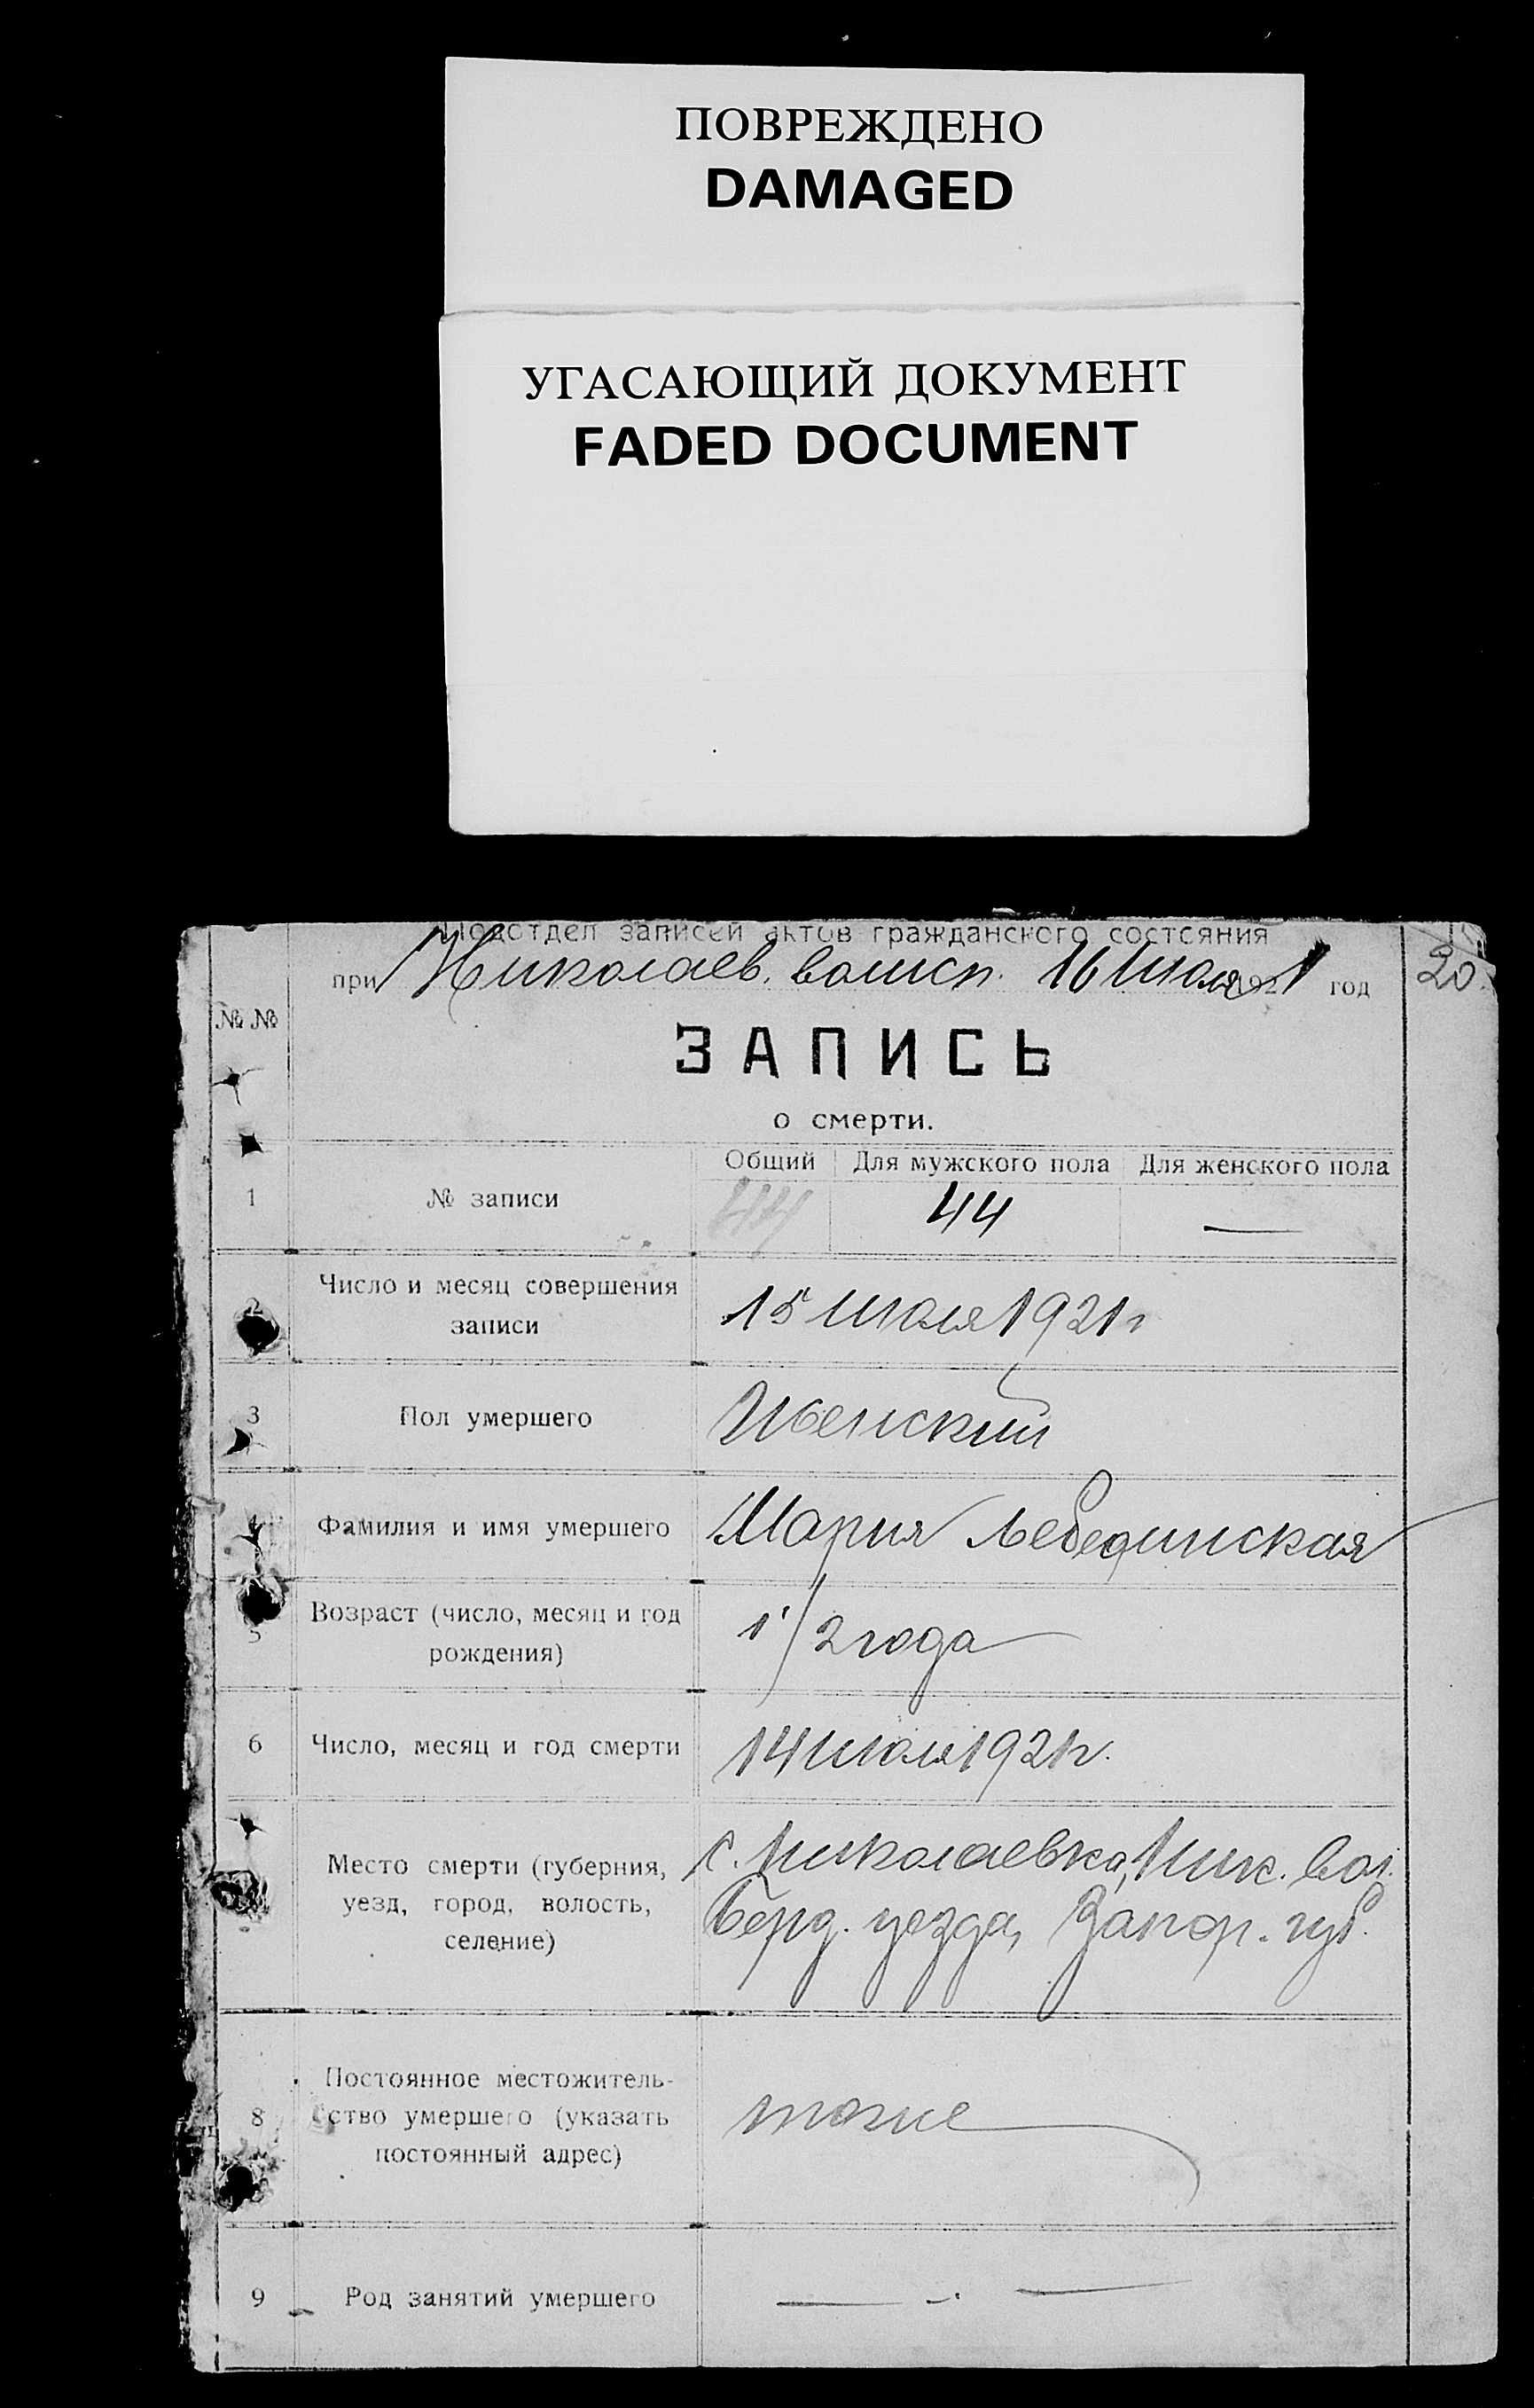 ПОВРЕЖДЕНО
DAMAGED
УГАСАЮЩИЙ ДОКУМЕНТ
FADED DOCUMENT
Подотдел записей актов гражданского состояния
при Николаев. волисп. 16 июля 1921 год
20.
№ №
ЗАПИСЬ
о смерти.
Общий Для мужского пола Для женского пола
1 № записи 44 44 —
2 Число и месяц совершения
записи
15 июля 1921 г
3 Пол умершего Женский
4 Фамилия и имя умершего Мария Лебединская
5 Возраст (число, месяц и год
рождения)
1 1/2 года
6 Число, месяц и год смерти 14 июля 1921 г.
Место смерти (губерния,
уезд, город, волость,
селение)
с. Николаевка, Ник. вол.
Берд. уезда, Запор. губ.
8 Постоянное местожитель-
ство умершего (указать
постоянный адрес)
тоже
9 Род занятий умершего — - . —